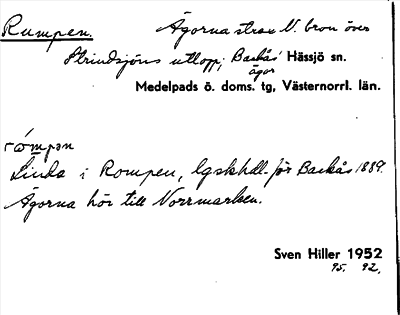 Rumpen. Ägorna strax N. bron över
Strindsjöns utlopp; Backås' Hässjö sn.
ägor
Medelpads ö. doms. tg, Västernorrl. län.
rómpən
Linda i Rompen, lgskhdl. för Backås 1889.
Ägorna hör till Norrmarken.
Sven Hiller 1952
95. 92.